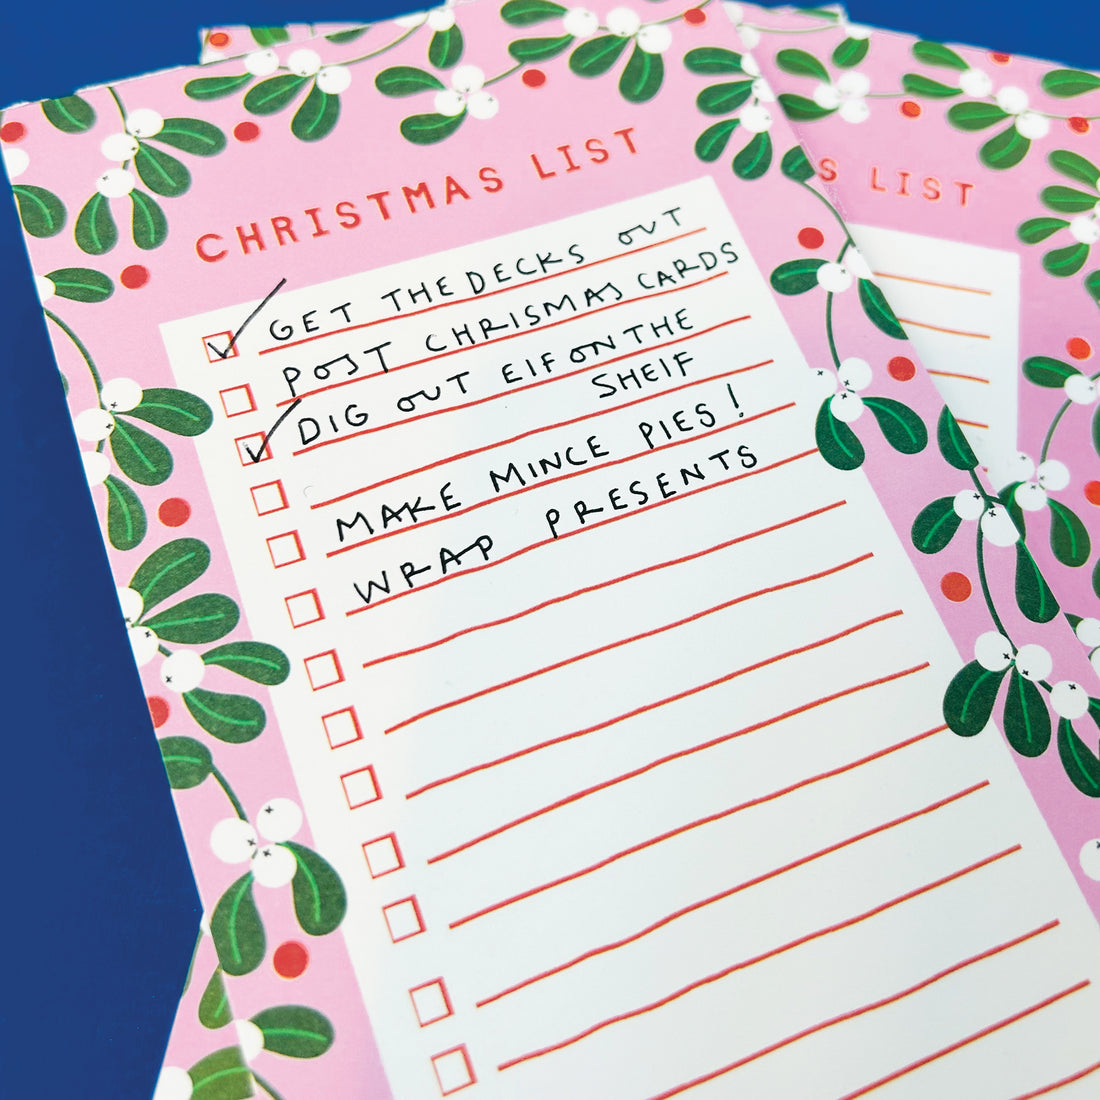 CHRISTMAS LIST
S LIST
GET THE DECKS OUT
POST CHRISMAS CARDS
DIG OUT ElF ON THE
SHElF
MAKE MINCE PIES!
WRAP PRESENTS